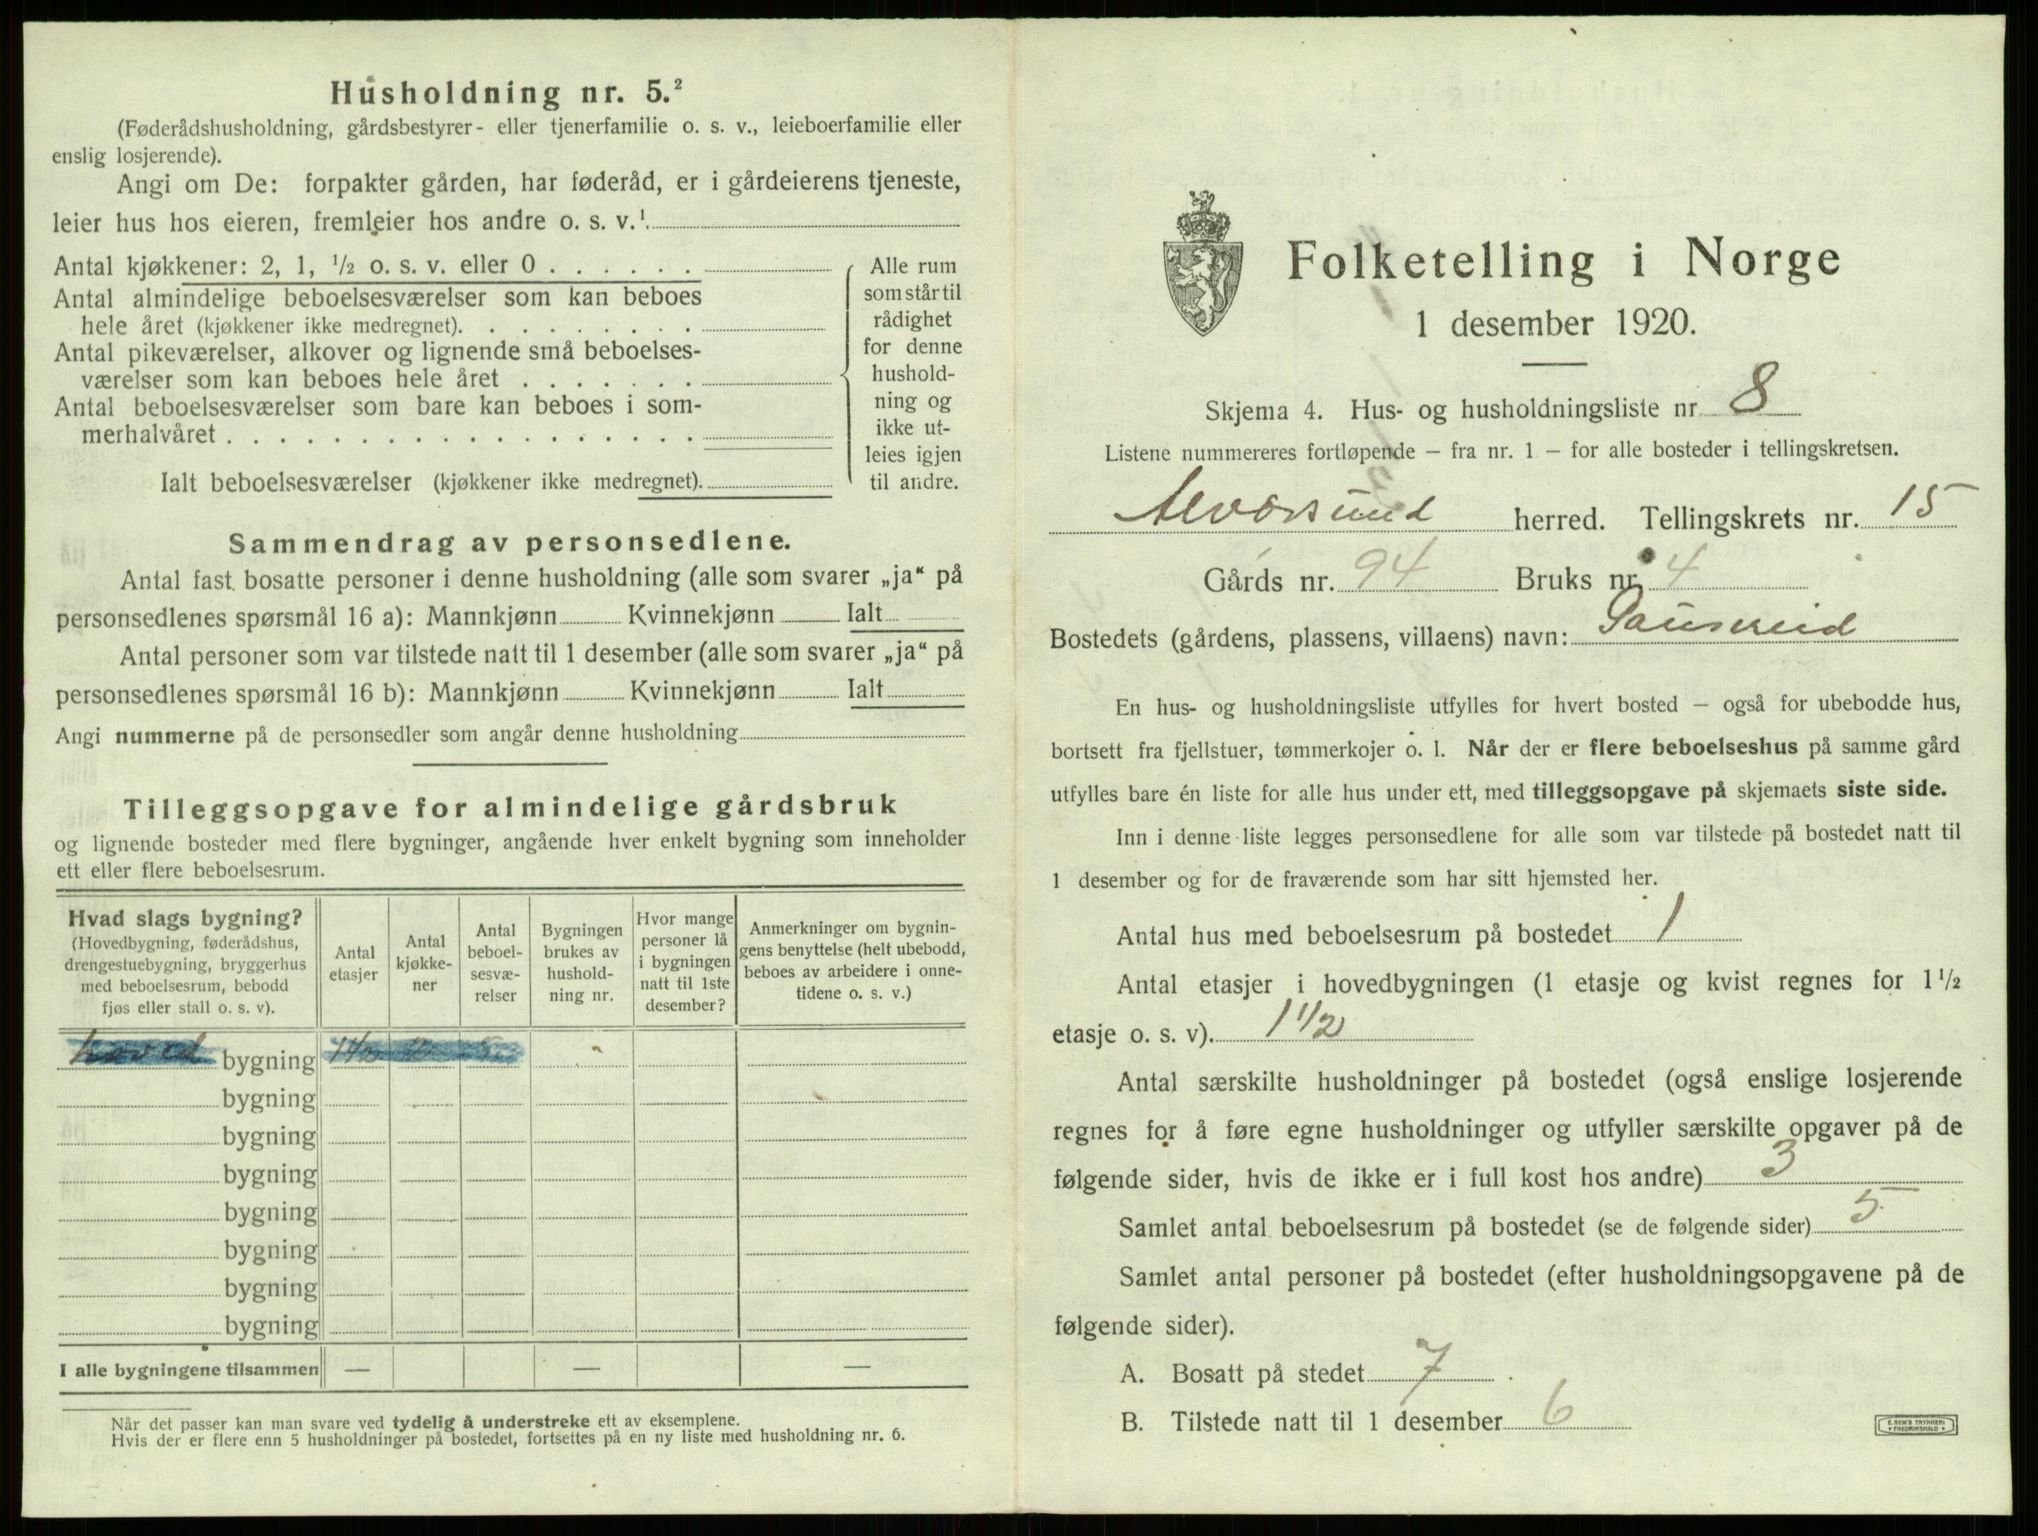 Husholdning nr. 5.²
(Føderådshusholdning, gårdsbestyrer- eller tjenerfamilie o. s. v., leieboerfamilie eller
enslig losjerende).
Angi om De: forpakter gården, har føderåd, er i gårdeierens tjeneste,
leier hus hos eieren, fremleier hos andre o. s. v.¹
Antal kjøkkener: 2, 1, ½ o. s. v. eller 0
Antal almindelige beboelsesværelser som kan beboes
hele året (kjøkkener ikke medregnet).
Antal pikeværelser, alkover og lignende små beboelses-
værelser som kan beboes hele året
Antal beboelsesværelser som bare kan beboes i som-
merhalvåret
Ialt beboelsesværelser (kjøkkener ikke medregnet).
Alle rum
som står til
rådighet
for denne
hushold-
ning og
ikke ut-
leies igjen
til andre.
Sammendrag av personsedlene.
Antal fast bosatte personer i denne husholdning (alle som svarer „ja“ på
personsedlenes spørsmål 16 a): Mannkjønn Kvinnekjønn Ialt
Antal personer som var tilstede natt til 1 desember (alle som svarer „ja“ på
personsedlenes spørsmål 16 b): Mannkjønn Kvinnekjønn Ialt
Angi nummerne på de personsedler som angår denne husholdning
Tilleggsopgave for almindelige gårdsbruk
og lignende bosteder med flere bygninger, angående hver enkelt bygning som inneholder
ett eller flere beboelsesrum.
Hvad slags bygning?
(Hovedbygning, føderådshus,
drengestuebygning, bryggerhus
med beboelsesrum, bebodd
fjøs eller stall o. s. v).
Antal
etasjer
Antal
kjøkke-
ner
Antal
beboel-
sesvæ-
relser
Bygningen
brukes av
hushold-
ning nr.
Hvor mange
personer lå
i bygningen
natt til 1ste
desember?
Anmerkninger om bygnin-
gens benyttelse (helt ubebodd,
beboes av arbeidere i onne-
tidene o. s. v.)
hoved bygning 1½ 2 5
bygning
bygning
bygning
bygning
bygning
bygning
bygning
I alle bygningene tilsammen — — —
Når det passer kan man svare ved tydelig å understreke ett av eksemplene.
Hvis der er flere enn 5 husholdninger på bostedet, fortsettes på en ny liste med husholdning nr. 6.
Folketelling i Norge
1 desember 1920.
Skjema 4. Hus- og husholdningsliste nr. 8
Listene nummereres fortløpende – fra nr. 1 – for alle bosteder i tellingskretsen.
Alversund herred. Tellingskrets nr. 15
Gårds nr. 94 Bruks nr. 4
Bostedets (gårdens, plassens, villaens) navn:
En hus- og husholdningsliste utfylles for hvert bosted – også for ubebodde hus,
bortsett fra fjellstuer, tømmerkojer o. l. Når der er flere beboelseshus på samme gård
utfylles bare én liste for alle hus under ett, med tilleggsopgave på skjemaets siste side.
Inn i denne liste legges personsedlene for alle som var tilstede på bostedet natt til
1 desember og for de fraværende som har sitt hjemsted her.
Antal hus med beboelsesrum på bostedet 1
Antal etasjer i hovedbygningen (1 etasje og kvist regnes for 1½
etasje o. s. v). 1½
Antal særskilte husholdninger på bostedet (også enslige losjerende
regnes for å føre egne husholdninger og utfyller særskilte opgaver på de
følgende sider, hvis de ikke er i full kost hos andre) 3
Samlet antal beboelsesrum på bostedet (se de følgende sider) 5
Samlet antal personer på bostedet (efter husholdningsopgavene på de
følgende sider).
A. Bosatt på stedet 7
B. Tilstede natt til 1 desember 6